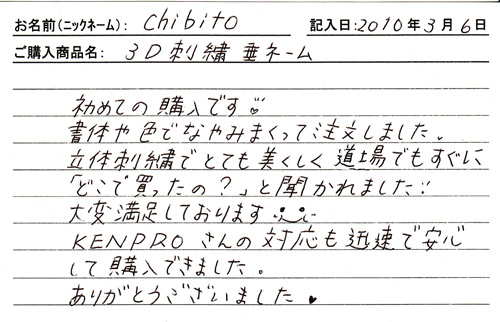 お名前(ニックネーム): chibito 記入日:2010年3月6日
ご購入商品名: 3D刺繍 垂ネーム
初めての購入です
書体や色でなやみまくって注文しました。
立体刺繍でとても美くしく道場でもすぐに
「どこで買ったの?」と聞かれました!!
大変満足しております
KENPROさんの対応も迅速で安心
して購入できました。
ありがとうございました ♥